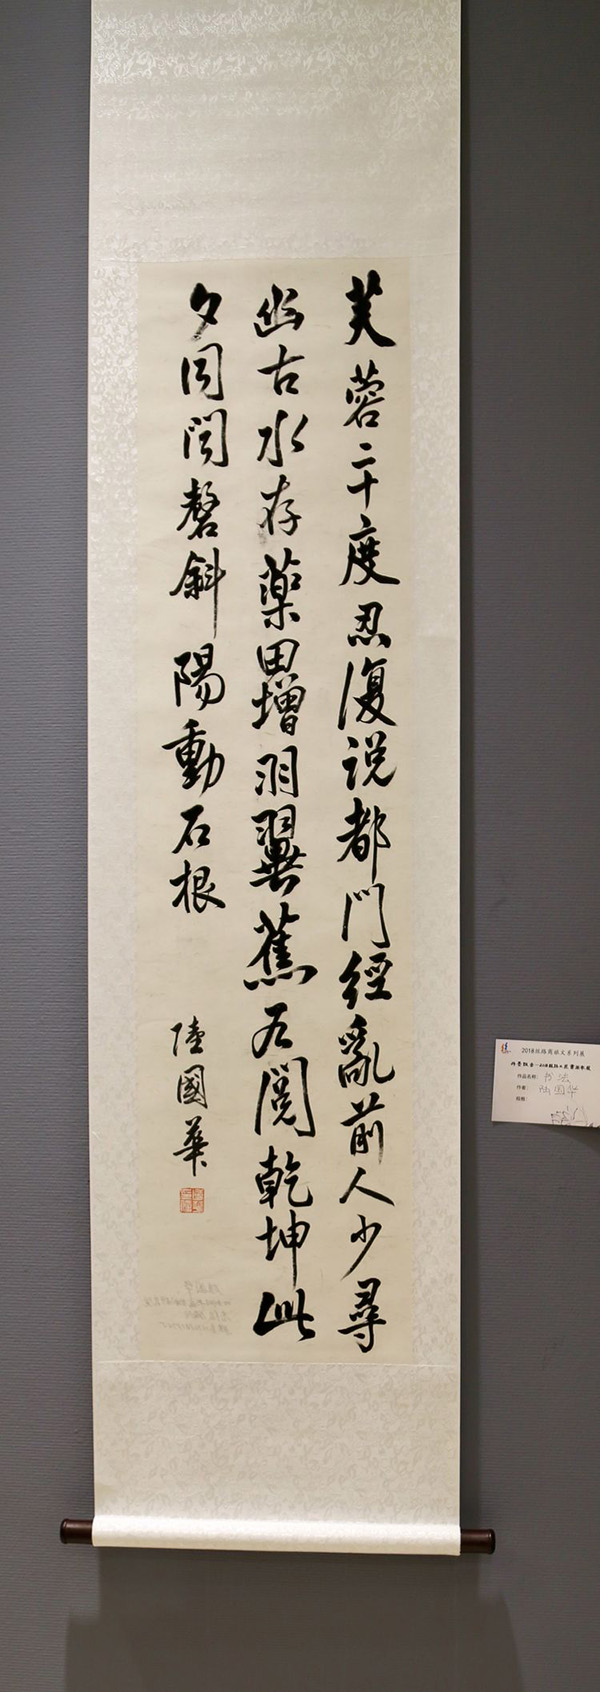 芙蓉二十度忍復说都門經亂前人少尋
幽古水存藥田增羽翼蕉石閲乾坤此
夕同聞磬斜陽動石根
陸國華
2018丝路商旅文系列展
作品名称：书法
作者：陆国华
规格：